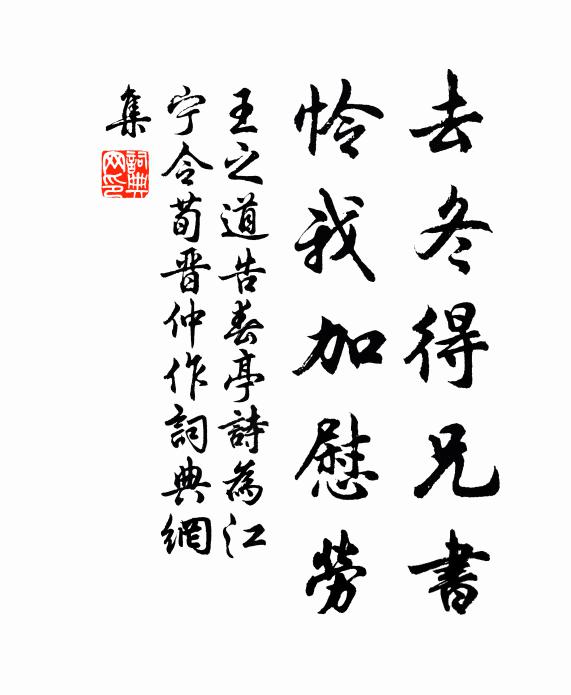 去冬得兄書
怜我加慰勞
王之道告春亭詩為江
宁令荀晋仲作詞典網
集
詞典
网印